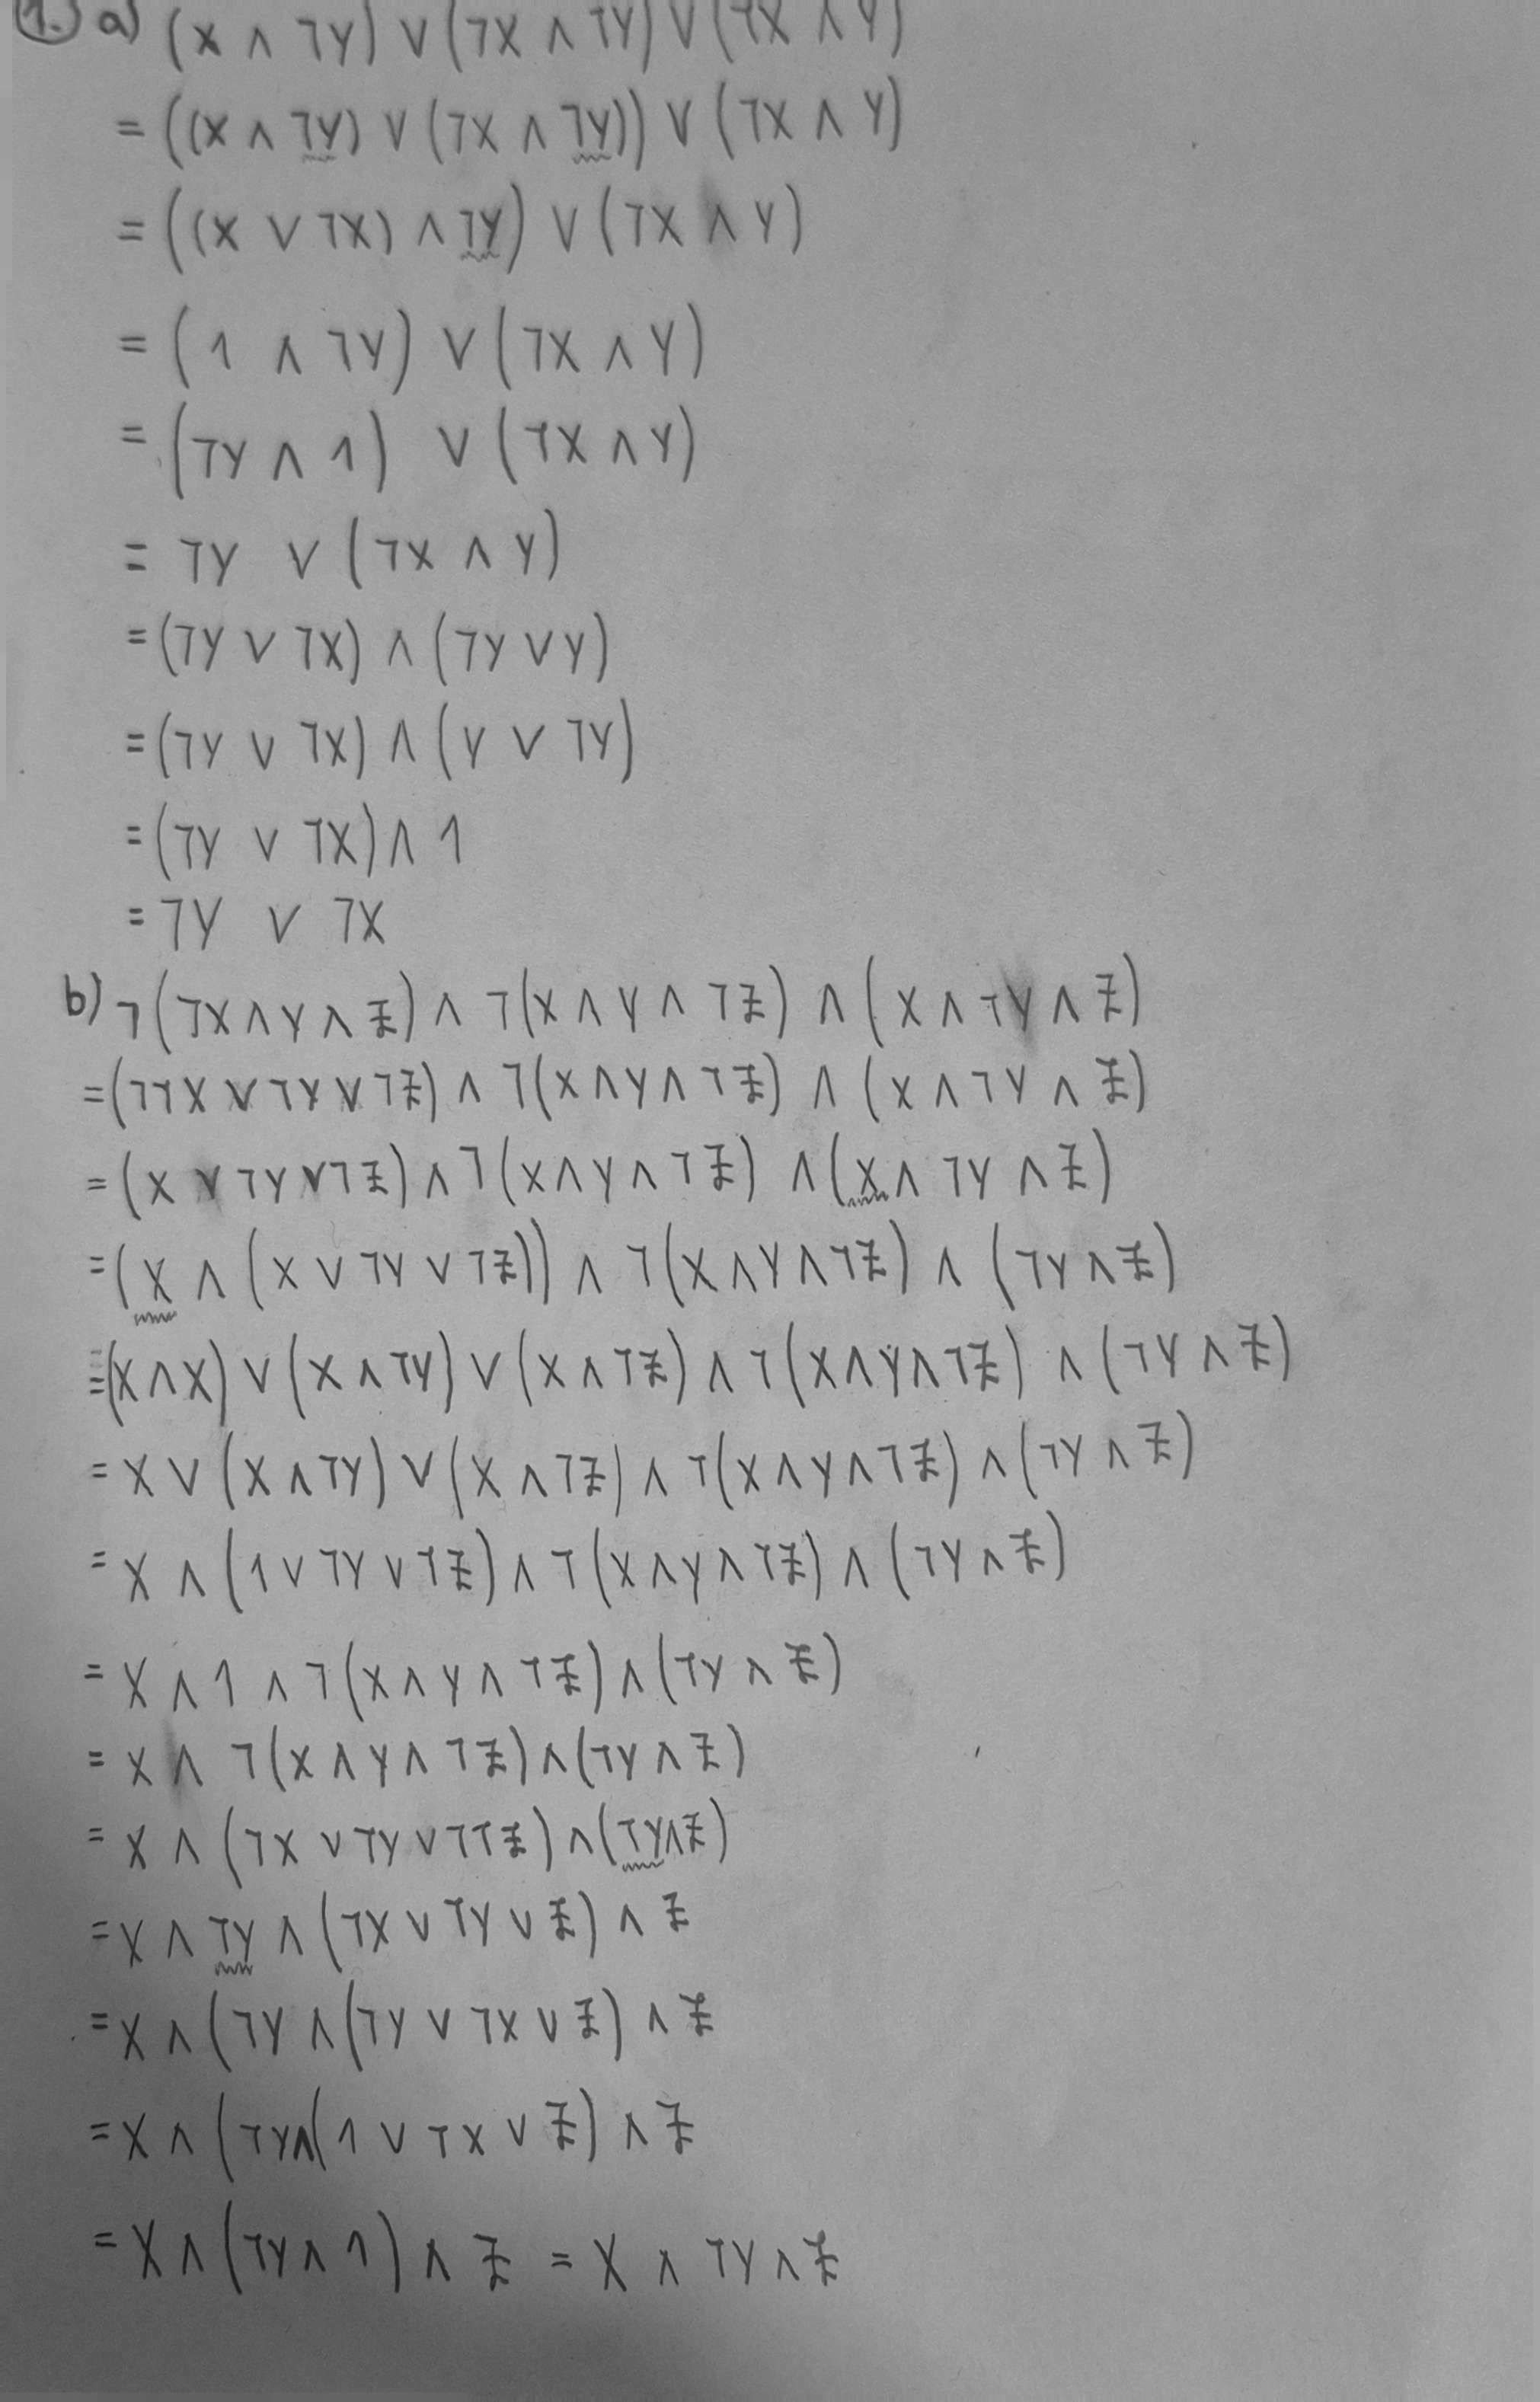 1. a) (x ∧ ¬y) ∨ (¬x ∧ ¬y) ∨ (¬x ∧ y)
= ((x ∧ ¬y) ∨ (¬x ∧ ¬y)) ∨ (¬x ∧ y)
= ((x ∨ ¬x) ∧ ¬y) ∨ (¬x ∧ y)
= (1 ∧ ¬y) ∨ (¬x ∧ y)
= (¬y ∧ 1) ∨ (¬x ∧ y)
= ¬y ∨ (¬x ∧ y)
= (¬y ∨ ¬x) ∧ (¬y ∨ y)
= (¬y ∨ ¬x) ∧ (y ∨ ¬y)
= (¬y ∨ ¬x) ∧ 1
= ¬y ∨ ¬x
b) ¬(¬x ∧ y ∧ z) ∧ ¬(x ∧ y ∧ ¬z) ∧ (x ∧ ¬y ∧ z)
= (¬¬x ∨ ¬y ∨ ¬z) ∧ ¬(x ∧ y ∧ ¬z) ∧ (x ∧ ¬y ∧ z)
= (x ∨ ¬y ∨ ¬z) ∧ ¬(x ∧ y ∧ ¬z) ∧ (x ∧ ¬y ∧ z)
= (x ∧ (x ∨ ¬y ∨ ¬z)) ∧ ¬(x ∧ y ∧ ¬z) ∧ (¬y ∧ z)
= (x ∧ x) ∨ (x ∧ ¬y) ∨ (x ∧ ¬z) ∧ ¬(x ∧ y ∧ ¬z) ∧ (¬y ∧ z)
= x ∨ (x ∧ ¬y) ∨ (x ∧ ¬z) ∧ ¬(x ∧ y ∧ ¬z) ∧ (¬y ∧ z)
= x ∧ (1 ∨ ¬y ∨ ¬z) ∧ ¬(x ∧ y ∧ ¬z) ∧ (¬y ∧ z)
= x ∧ 1 ∧ ¬(x ∧ y ∧ ¬z) ∧ (¬y ∧ z)
= x ∧ ¬(x ∧ y ∧ ¬z) ∧ (¬y ∧ z)
= x ∧ (¬x ∨ ¬y ∨ ¬¬z) ∧ (¬y ∧ z)
= x ∧ ¬y ∧ (¬x ∨ ¬y ∨ z) ∧ z
= x ∧ (¬y ∧ (¬y ∨ ¬x ∨ z) ∧ z
= x ∧ (¬y ∧ (1 ∨ ¬x ∨ z) ∧ z
= x ∧ (¬y ∧ 1) ∧ z = x ∧ ¬y ∧ z